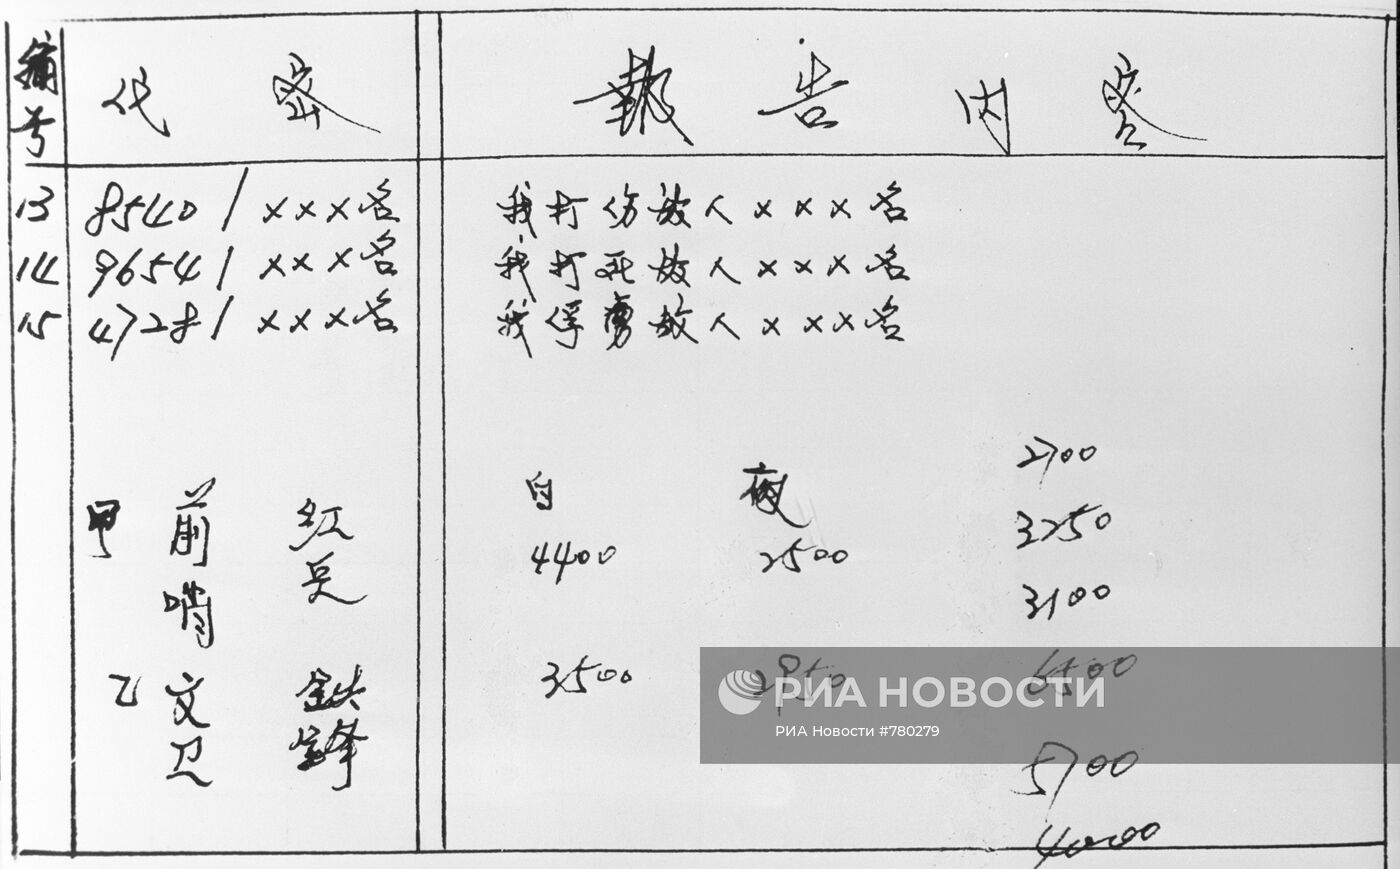 编号 代密 報告内容
13 8540 / ×××名 我打伤敌人×××名
14 9654 / ×××名 我打死敌人×××名
15 4728 / ×××名 我俘虏敌人×××名
白 夜 2700
甲 前哨 红兵 4400 2500 3250
3100
乙 文卫 铁锋 3500 2950 6500
РИА НОВОСТИ
РИА Новости #780279
5700
4000